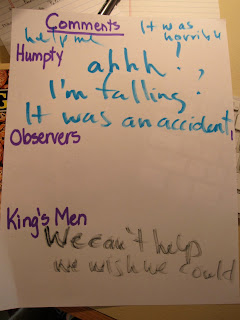 Comments
It was
help me
horrible
Humpty
ahhh!,
I'm falling!
It was an accident!
Observers
King's Men
We can't help
we wish we could